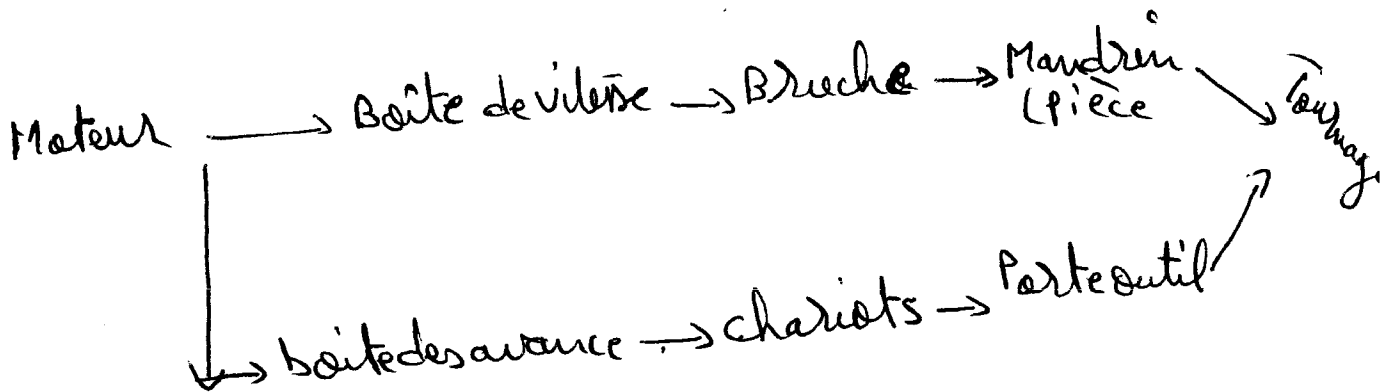 Moteur → Boîte de vitesse → Bruche → Mandrin
(pièce
Tournag.
boite des avance → chariots → Porte outil